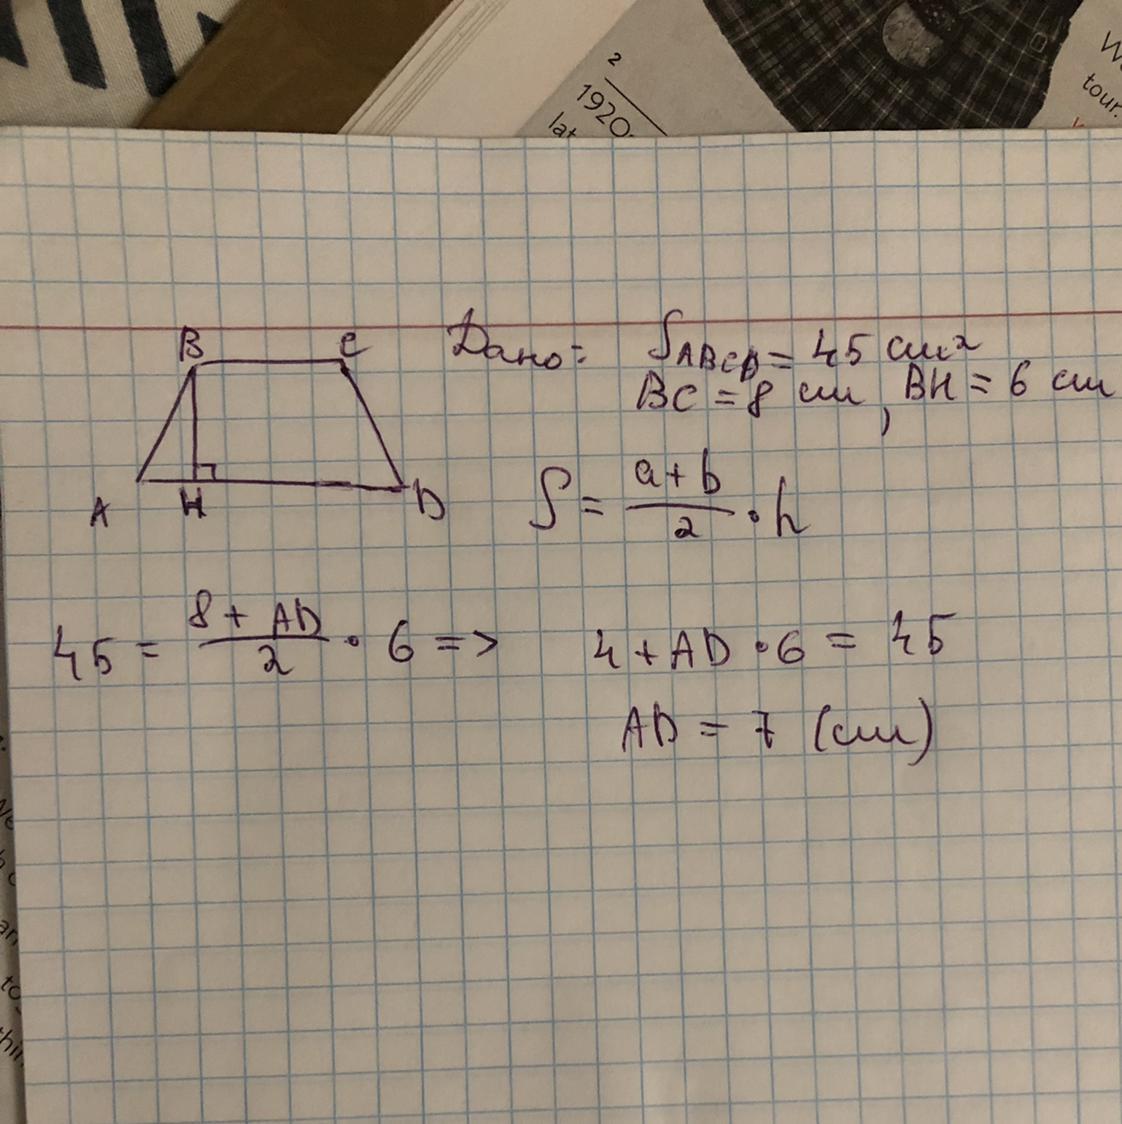 2
1920
lat
W
tour.
B C Дано: S_ABCD = 45 см²
BC = 8 см, BH = 6 см
A H D
S = (a + b)/2 · h
45 = (8 + AD)/2 · 6 => 4 + AD · 6 = 45
AD = 7 (см)